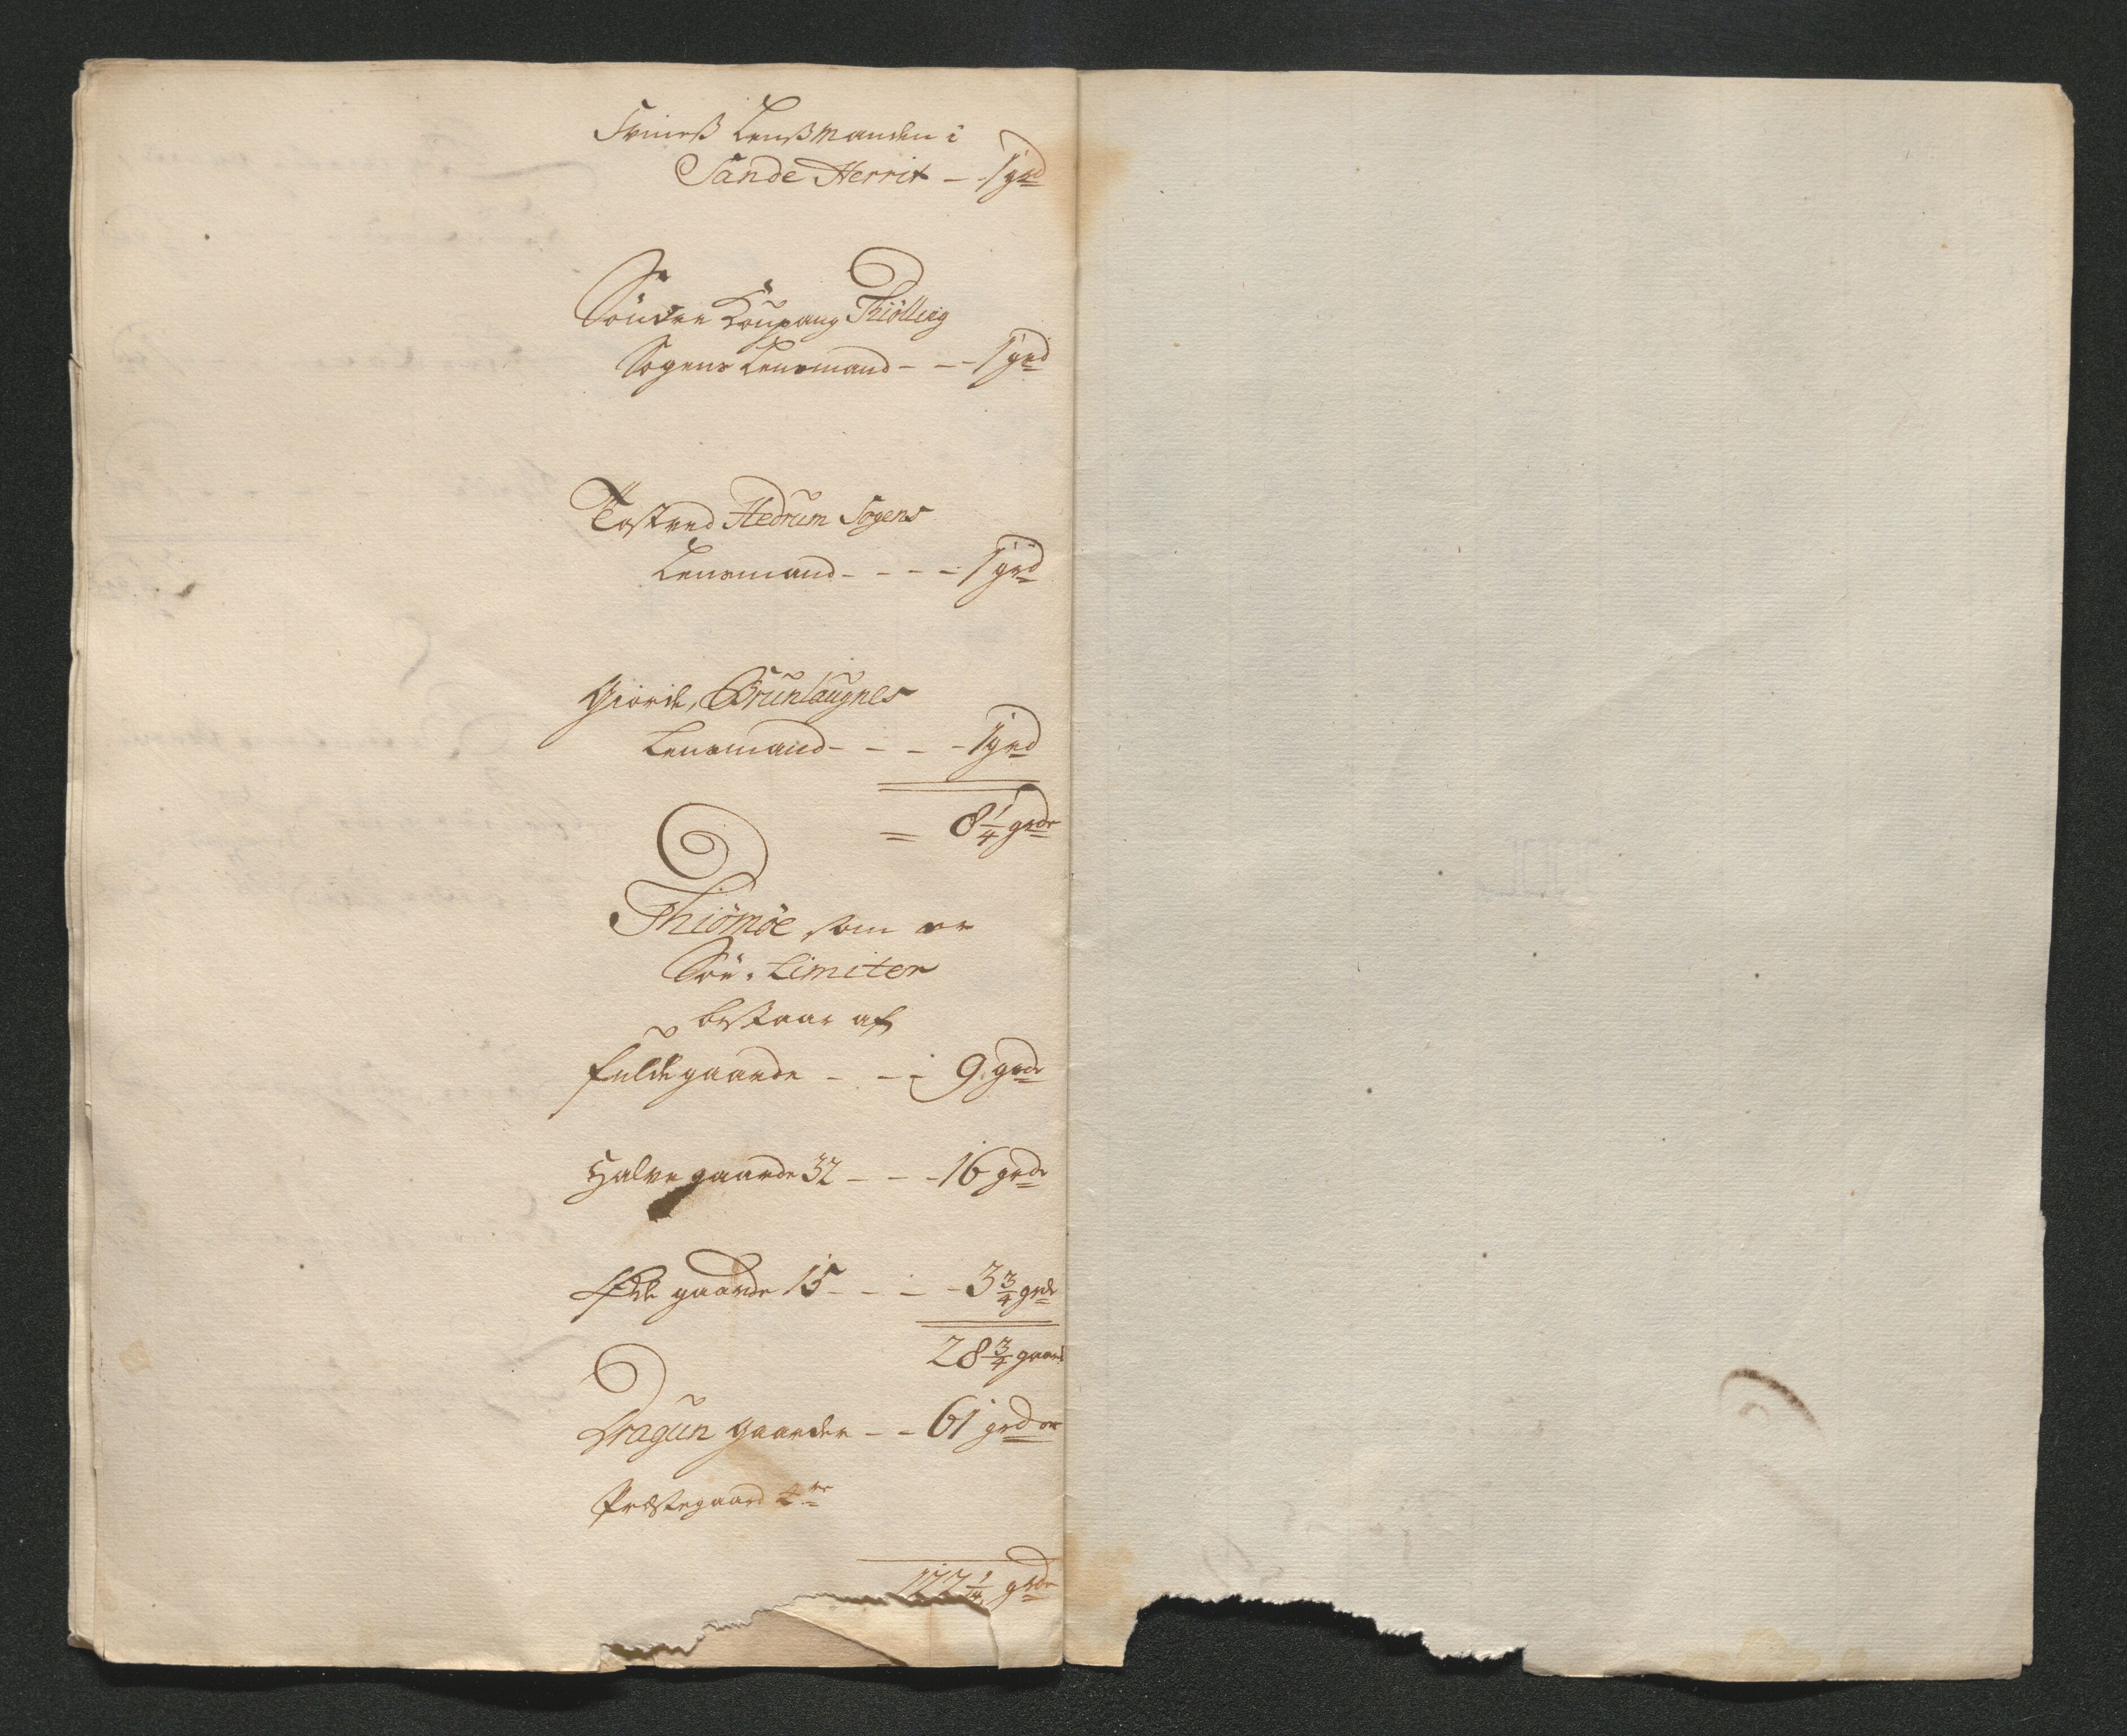 Svineß Lenßmanden i
Sande Herrit - 1 grd
Sönder Kaupang Thiölling
Sogens Lensmand - - 1 grd
Tostved Hedrum Sogens
Lensmand - - - - 1 grd
Giorde, Brunlaugnes
Lensmand - - - - 1 grd
= 8 1/4 grdr
Thiömöe som er
Söe. Limiter
bestaar af
fulde gaarde - - - 9. grdr
Halve gaarde 32 - - - 16 grdr
Øde gaarde 15 - - - - 3 3/4 grdr
28 3/4 gaard
Dragun gaarder - - 61 grder
Præstegaard
122 1/4 grdr